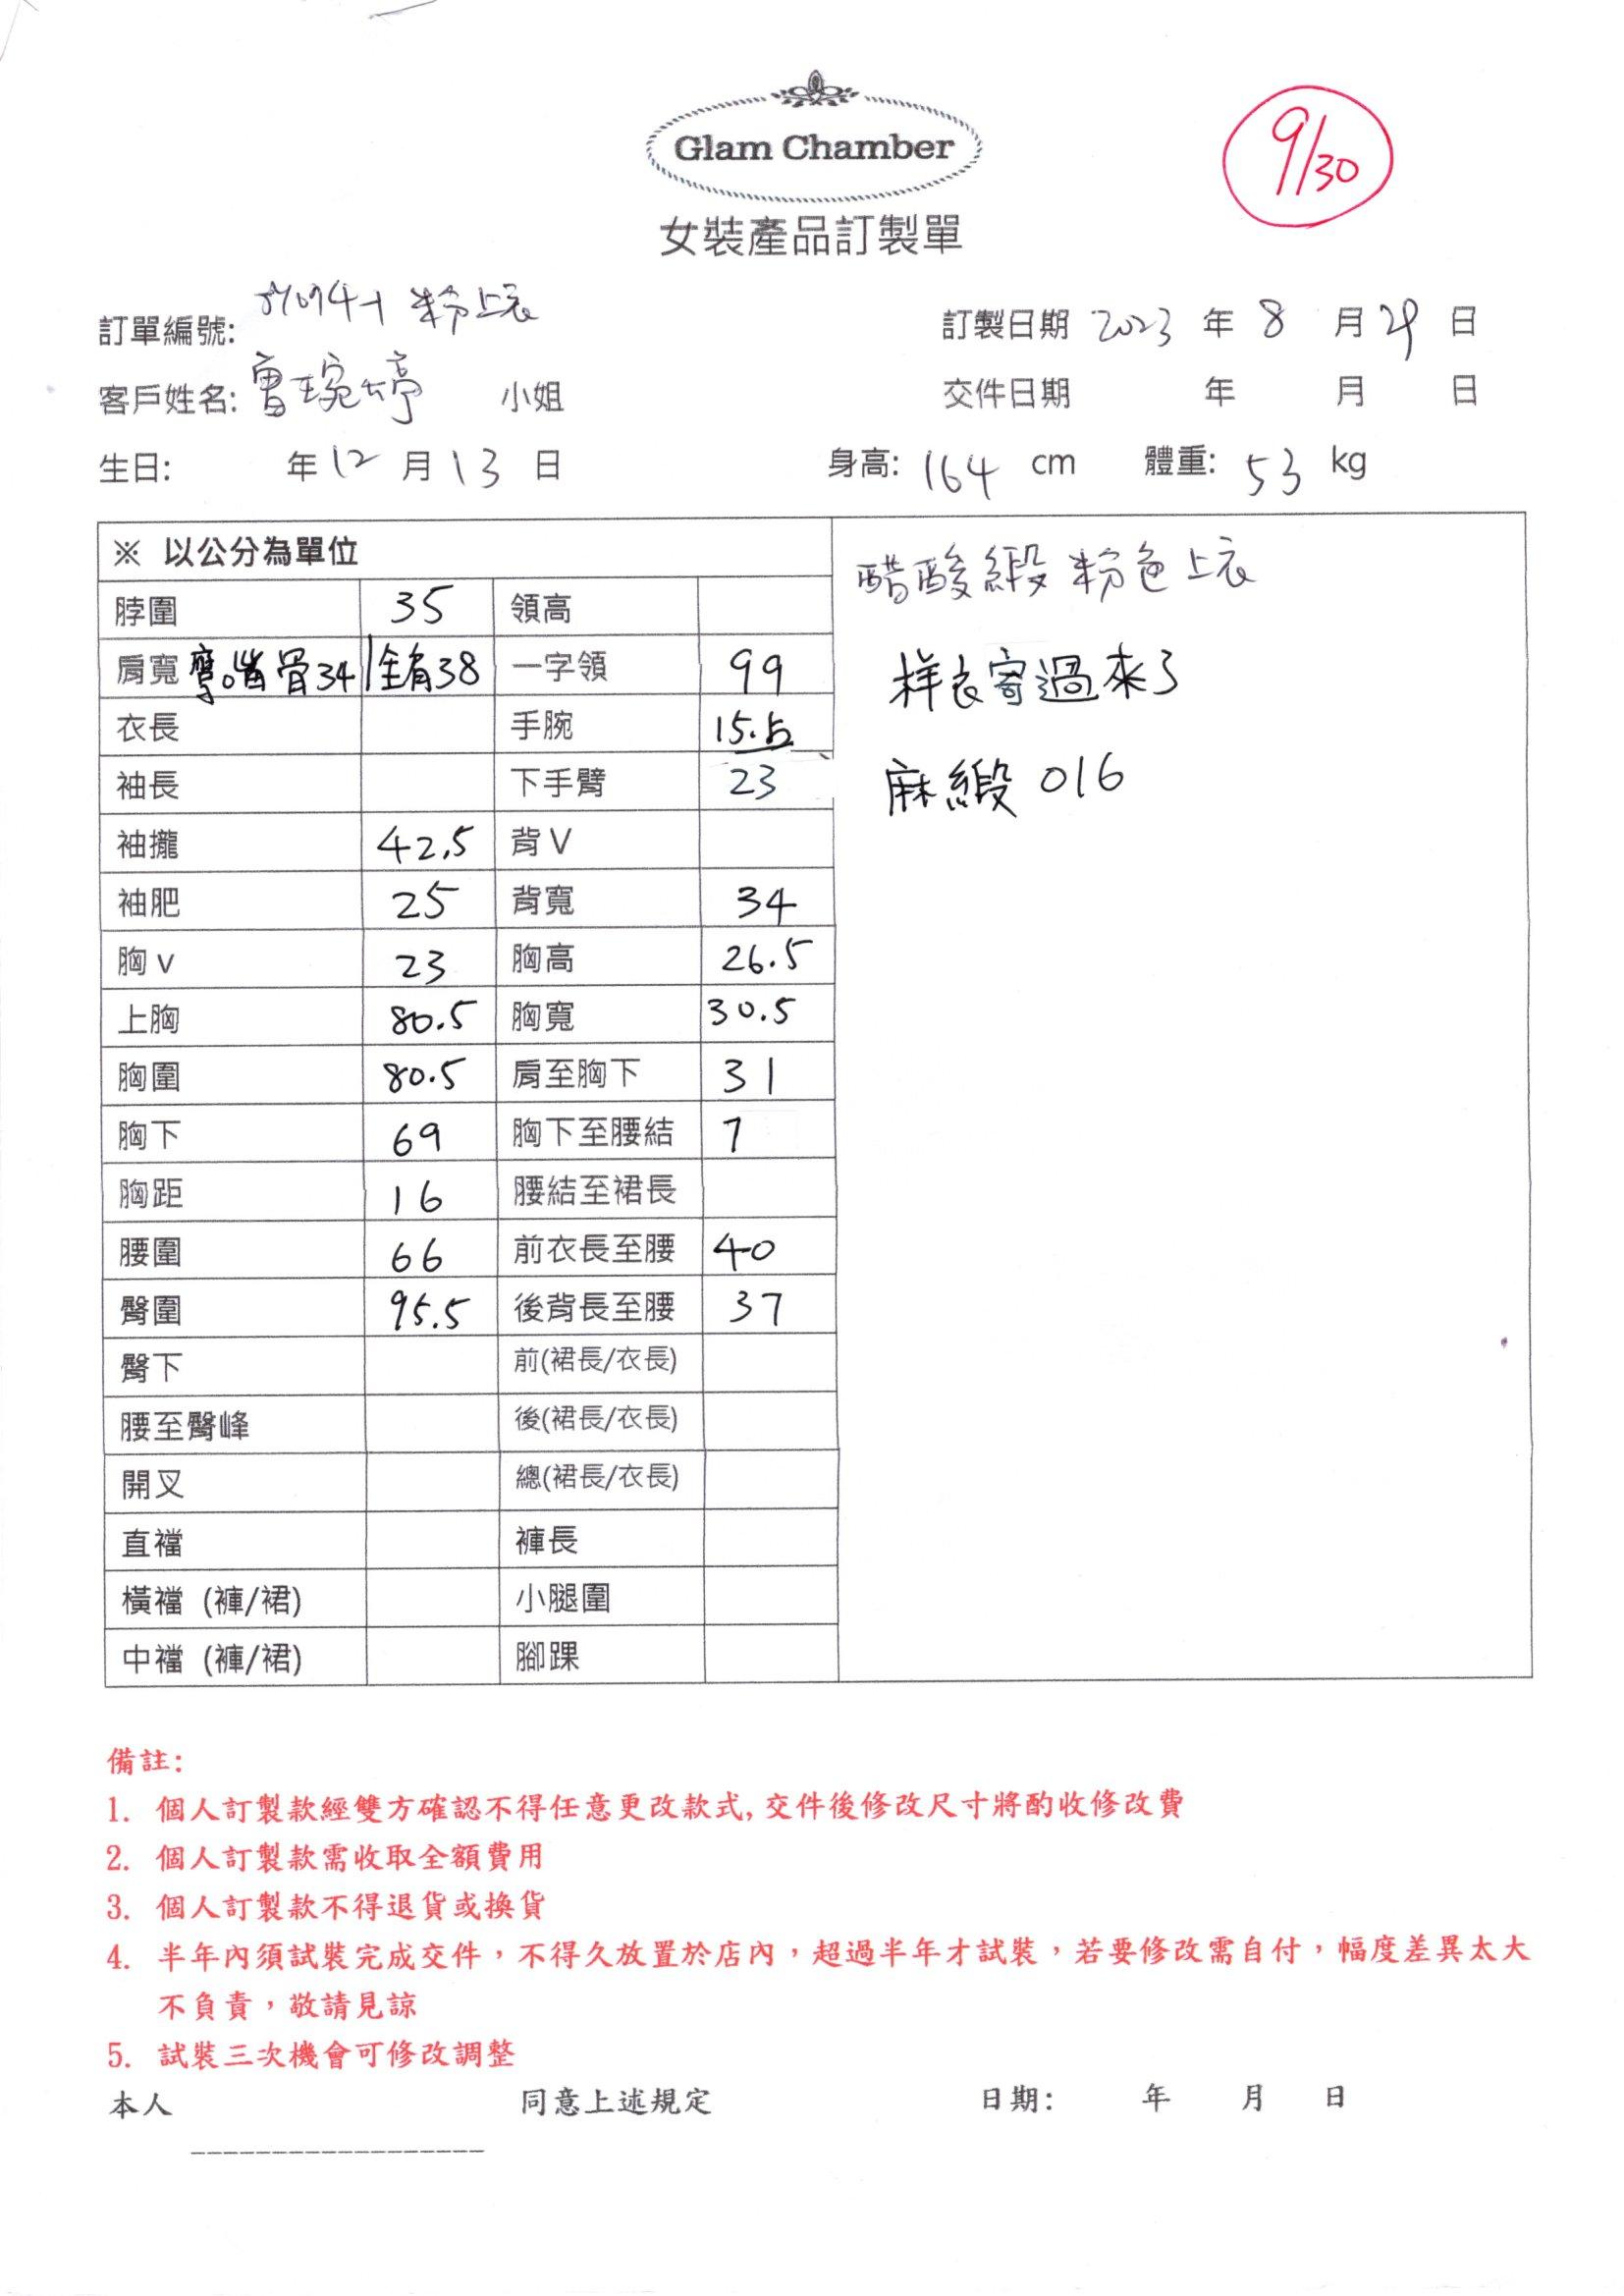 Glam Chamber
9/30
女裝產品訂製單
訂單編號: 粉上衣
訂製日期 2023 年 8 月 29 日
客戶姓名: 曹琬婷 小姐
交件日期 年 月 日
生日: 年 12 月 13 日
身高: 164 cm 體重: 53 kg
※ 以公分為單位
脖圍 35 領高
肩寬 骨34 全肩38 一字領 99
衣長 手腕 15.5
袖長 下手臂 23
袖攏 42.5 背V
袖肥 25 背寬 34
胸v 23 胸高 26.5
上胸 80.5 胸寬 30.5
胸圍 80.5 肩至胸下 31
胸下 69 胸下至腰結 7
胸距 16 腰結至裙長
腰圍 66 前衣長至腰 40
臀圍 95.5 後背長至腰 37
臀下 前(裙長/衣長)
腰至臀峰 後(裙長/衣長)
開叉 總(裙長/衣長)
直襠 褲長
橫襠 (褲/裙) 小腿圍
中襠 (褲/裙) 腳踝
醋酸緞 粉色上衣
样衣寄過來了
麻緞 016
備註:
1. 個人訂製款經雙方確認不得任意更改款式, 交件後修改尺寸將酌收修改費
2. 個人訂製款需收取全額費用
3. 個人訂製款不得退貨或換貨
4. 半年內須試裝完成交件，不得久放置於店內，超過半年才試裝，若要修改需自付，幅度差異太大
不負責，敬請見諒
5. 試裝三次機會可修改調整
本人 同意上述規定 日期: 年 月 日